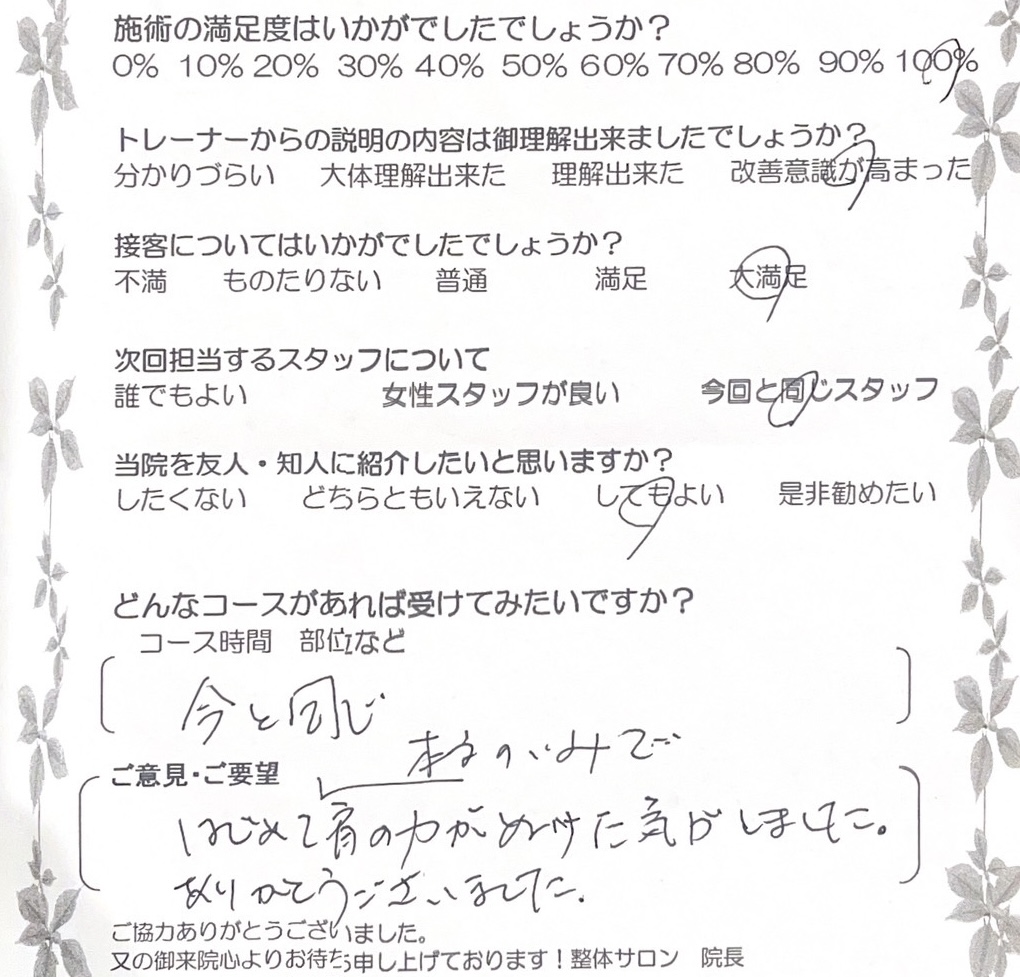 施術の満足度はいかがでしたでしょうか？
0% 10% 20% 30% 40% 50% 60% 70% 80% 90% 100%
トレーナーからの説明の内容は御理解出来ましたでしょうか？
分かりづらい 大体理解出来た 理解出来た 改善意識が高まった
接客についてはいかがでしたでしょうか？
不満 ものたりない 普通 満足 大満足
次回担当するスタッフについて
誰でもよい 女性スタッフが良い 今回と同じスタッフ
当院を友人・知人に紹介したいと思いますか？
したくない どちらともいえない してもよい 是非勧めたい
どんなコースがあれば受けてみたいですか？
コース時間 部位など
今と同じ
みで
ご意見・ご要望
はじめて肩の力がぬけた気がしました。
ありがとうございました。
ご協力ありがとうございました。
又の御来院心よりお待ち申し上げております！整体サロン 院長